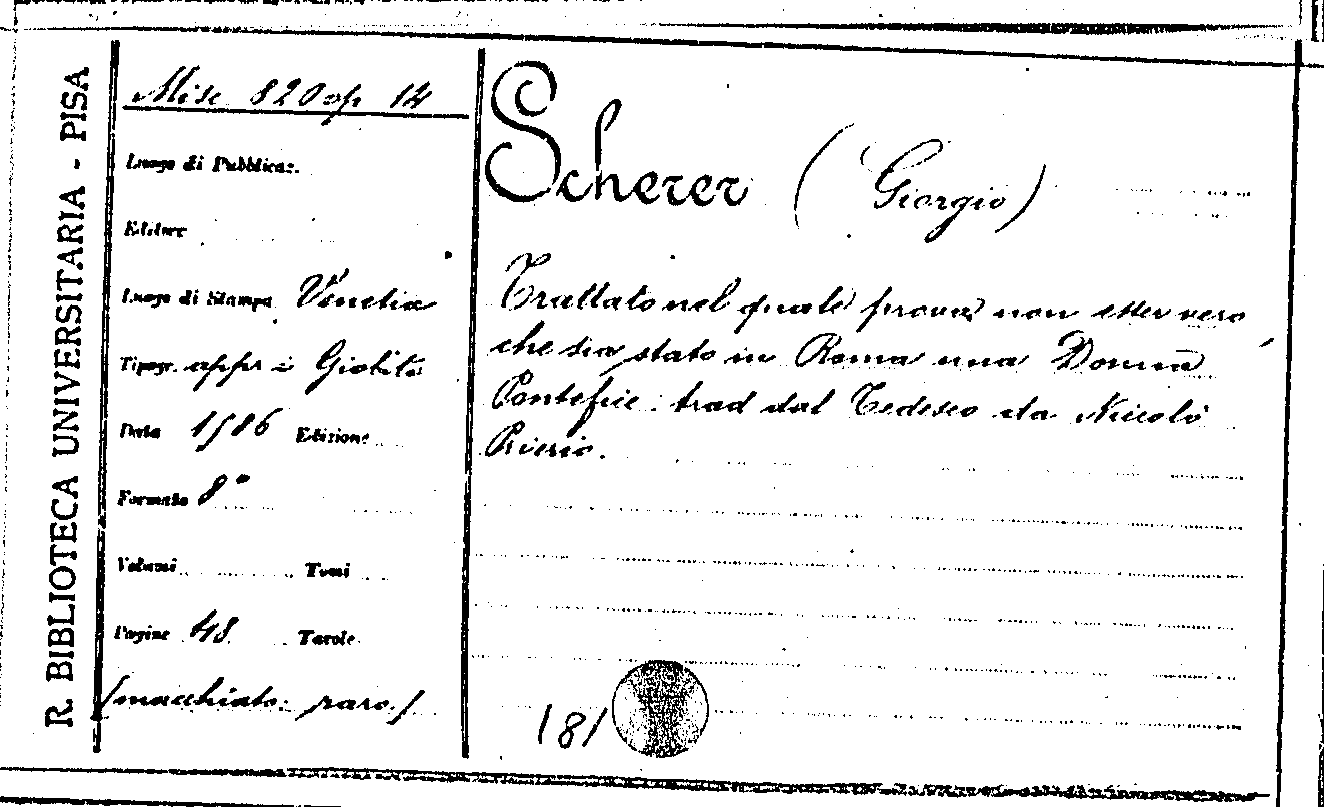 R. BIBLIOTECA UNIVERSITARIA - PISA
Misc 820 op 14
Luogo di Pubblicaz.
Editore
Luogo di Stampa Venetia
Tipogr. appr i Gioliti
Data 1586 Edizione
Formato 8°
Volumi Tomi
Pagine 48 Tavole
(macchiato: raro)
Scherer (Giorgio)
Trattato nel quale prova non esser vero
che sia stato in Roma una Donna
Pontefice: trad dal Tedesco da Niccolò
Pierio.
(8)